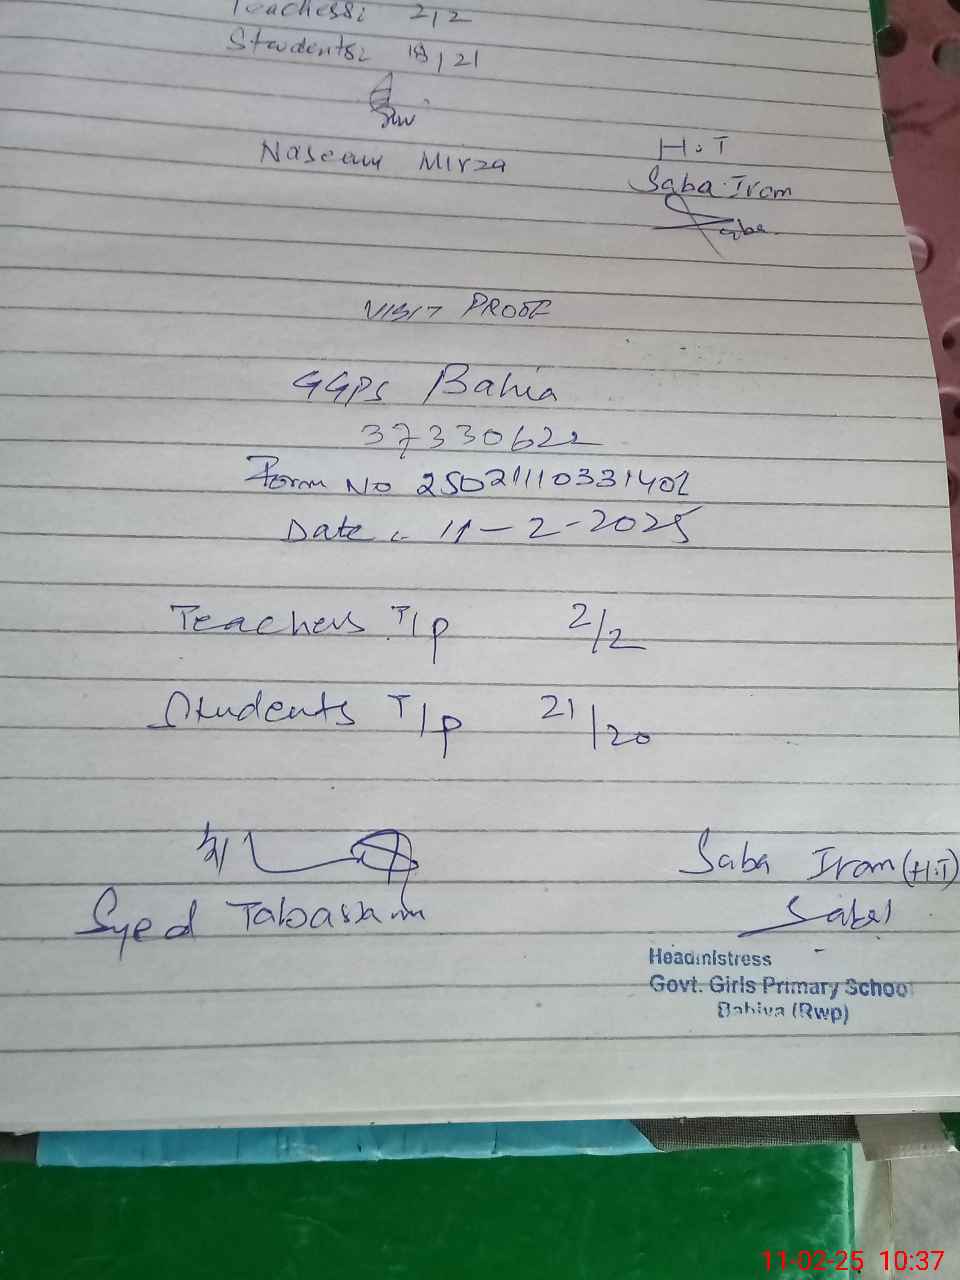 Teachers: 2,2
Students: 18, 21
Naseam Mirza
H.T
Saba Irom
Saba
VISIT PROOF
GGPS Bahia
37330622
Form No 25021110331401
Date :- 11-2-2025
Teachers T/P 2/2
Students T/P 21/20
Syed Tabassam
Saba Irom (H.T)
Saba
Headmistress
Govt. Girls Primary School
Bahiya (Rwp)
11-02-25 10:37